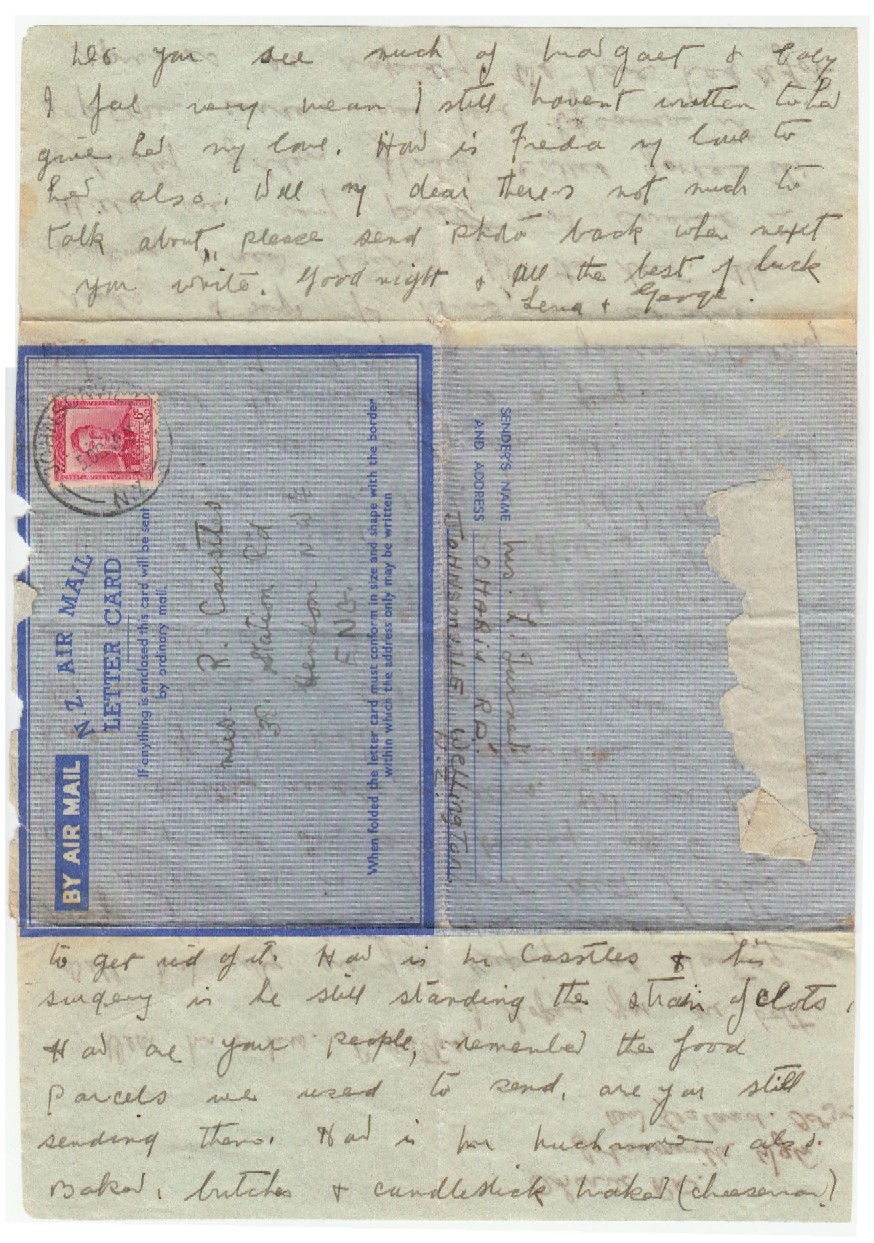 Do you see much of Margaet & Baby
I feel very mean I still havent written to her
give her my love. How is Freda my love to
her also. Well my dear theres not much to
talk about, please send photo back when next
you write. Good night & all the best of luck
Lena & George.
BY AIR MAIL
N.Z. AIR MAIL
LETTER CARD
If anything is enclosed this card will be sent
by ordinary mail.
JOHNSONVILLE
N.Z.
Mrs. R. Casstles
Station Rd
Hendon N.W.4
ENG.
When folded the letter card must conform in size and shape with the border
within which the address only may be written
SENDER'S NAME Mrs. L. Turner
AND ADDRESS OHARIU RD.
JOHNSONVILLE Wellington
N.Z.
to get rid of it. How is Mr Casstles & his
surgery is he still standing the strain of clots,
How are your people, remember the food
Parcels we used to send, are you still
sending them. How is Mr , also
Baker, butcher & candlestick maker (cheeseman)